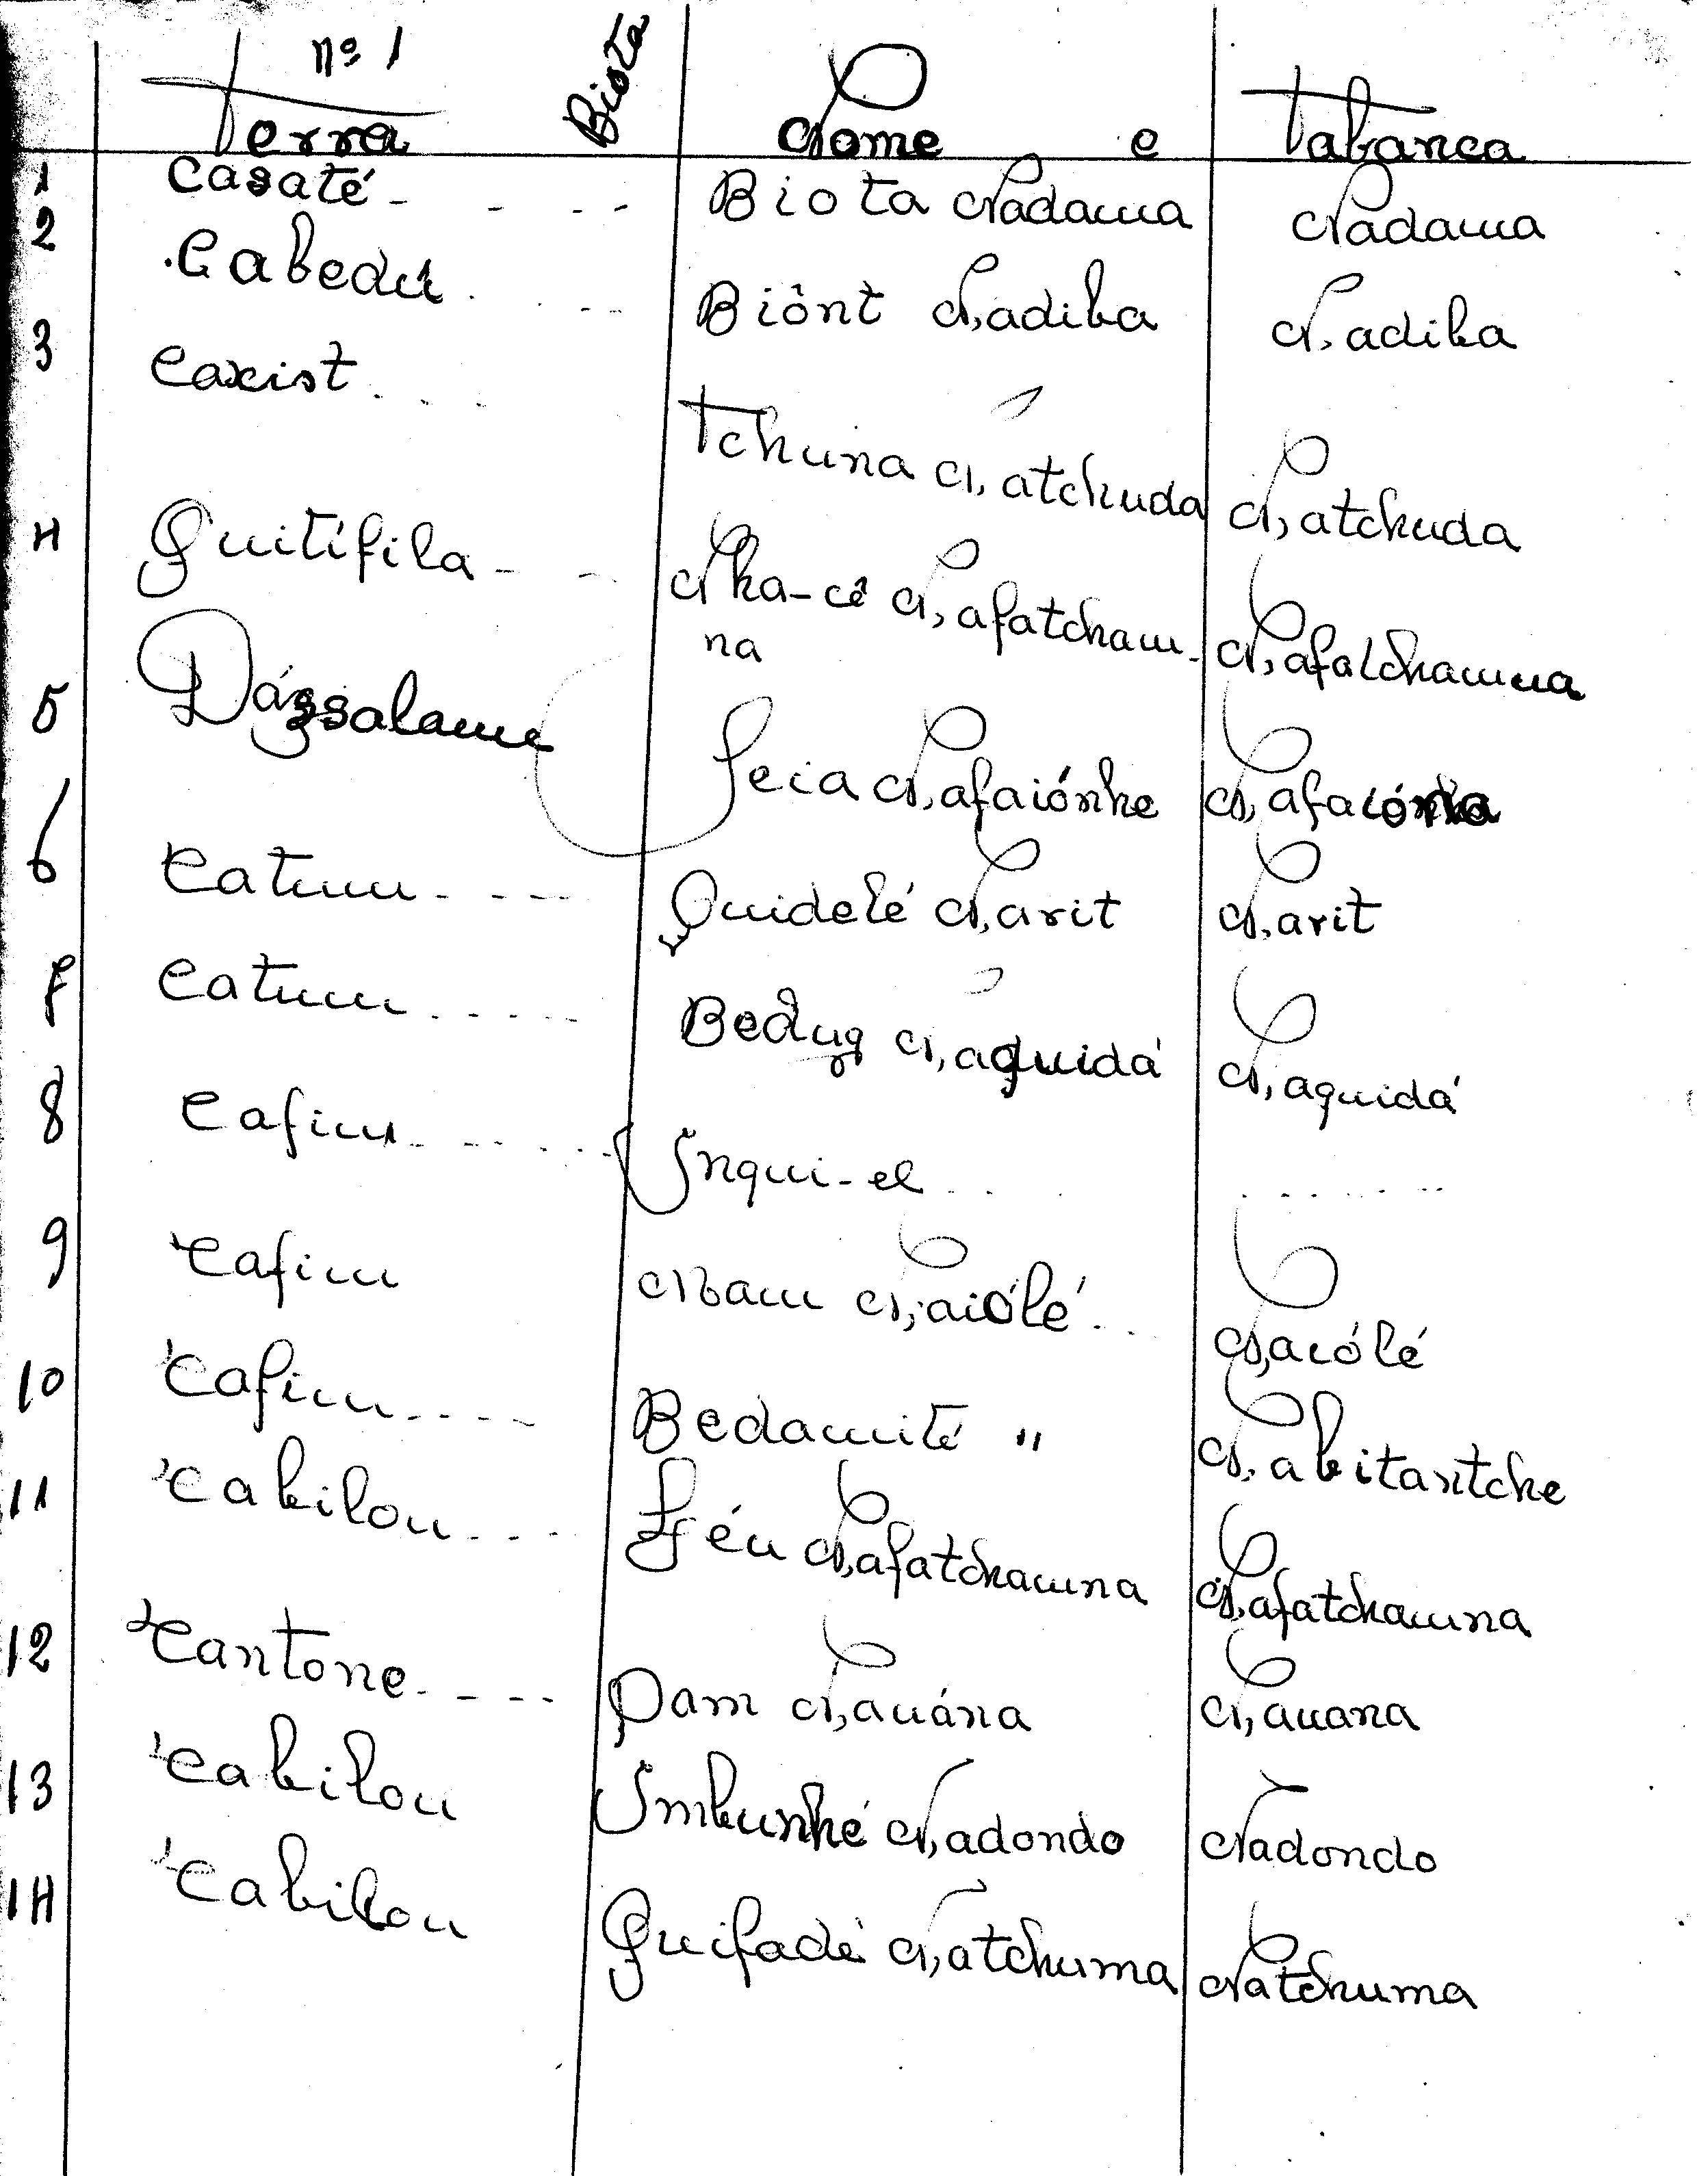 nº 1 Biota
Terra Nome e Tabanca
1 Casaté - - - - Biota Nadama Nadama
2 Cabedú - - - - Biônt N,adiba N,adiba
3 Caxist - - - Tchuna N,atchuda N,atchuda
4 Quitífila - - - Nha-cê N,afatcham- N,afatchamna
na
5 Dázssalame Seia N,afaiónhe N,afaiónha
6 Catum - - - - Quidelé N,arit N,arit
7 Catum - - - - - Beduz N,aguidá N,aguidá
8 Cafim - - - - - - Inqui-el - - - - - - - -
9 Cafim Nbam N,aiólé - - N,aiólé
10 Cafim - - - - Bedamité " N,abitantche
11 Cabilou - - - - Féu N,afatchamna N,afatchamna
12 Cantone - - - - Dam N,auána N,auana
13 Cabilou Imbunhé N,adondo Nadondo
14 Cabilou Quifadé N,atchuma Natchuma